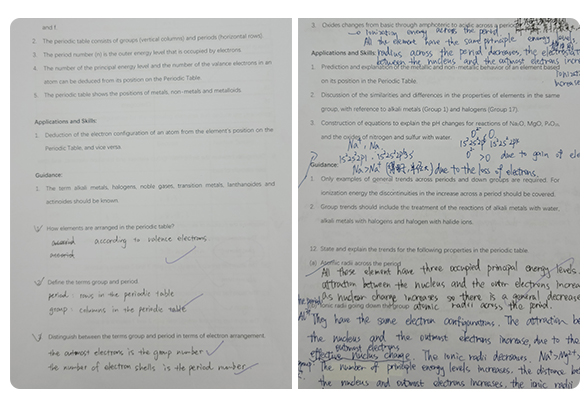 and f.
2. The periodic table consists of groups (vertical columns) and periods (horizontal rows).
3. The period number (n) is the outer energy level that is occupied by electrons.
4. The number of the principal energy level and the number of the valence electrons in an
atom can be deduced from its position on the Periodic Table.
5. The periodic table shows the positions of metals, non-metals and metalloids.
Applications and Skills:
1. Deduction of the electron configuration of an atom from the element's position on the
Periodic Table, and vice versa.
Guidance:
1. The term alkali metals, halogens, noble gases, transition metals, lanthanoides and
actinoides should be known.
How elements are arranged in the periodic table?
according to valence electrons
Define the terms group and period.
period: rows in the periodic table
group: columns in the periodic table
Distinguish between the terms group and period in terms of electron arrangement.
the outmost electrons is the group number
the number of electron shells is the period number
3. Oxides change from basic through amphoteric to acidic across a period
Ionization energy across the period
All the element have the same principle energy level,
radius across the period decreases, the
Applications and Skills:
between the nucleus and the outmost electrons
1. Prediction and explanation of the metallic and non-metallic behavior of an element based
on its position in the Periodic Table.
Ionization
increase
2. Discussion of the similarities and differences in the properties of elements in the same
group, with reference to alkali metals (Group 1) and halogens (Group 17)
3. Construction of equations to explain the pH changes for reactions of Na₂O, MgO, P₄O₁₀,
and the oxides of nitrogen and sulfur with water.
Na⁺, Na
due to gain of
Guidance:
Na>Na⁺
due to the loss of electrons.
1. Only examples of general trends across periods and down groups are required. For
ionization energy the discontinuities in the increase across a period should be covered.
2. Group trends should include the treatment of the reactions of alkali metals with water,
alkali metals with halogens and halogen with halide ions.
12. State and explain the trends for the following properties in the periodic table.
(a) Atomic radii across the period
All these element have three occupied principal energy levels
attraction between the nucleus and the outer electrons increase
As nuclear charge increases so there is a general decrease
Ionic radii going down the group
atomic radii across the period.
They have the same electron configurations. The attraction be
the nucleus and the outmost electrons increase, due to the
outmost electrons
effective nucleus charge. The ionic radii decreases.
The number of principle energy levels increases, the distance be
the nucleus and outmost electrons increases, the ionic radii